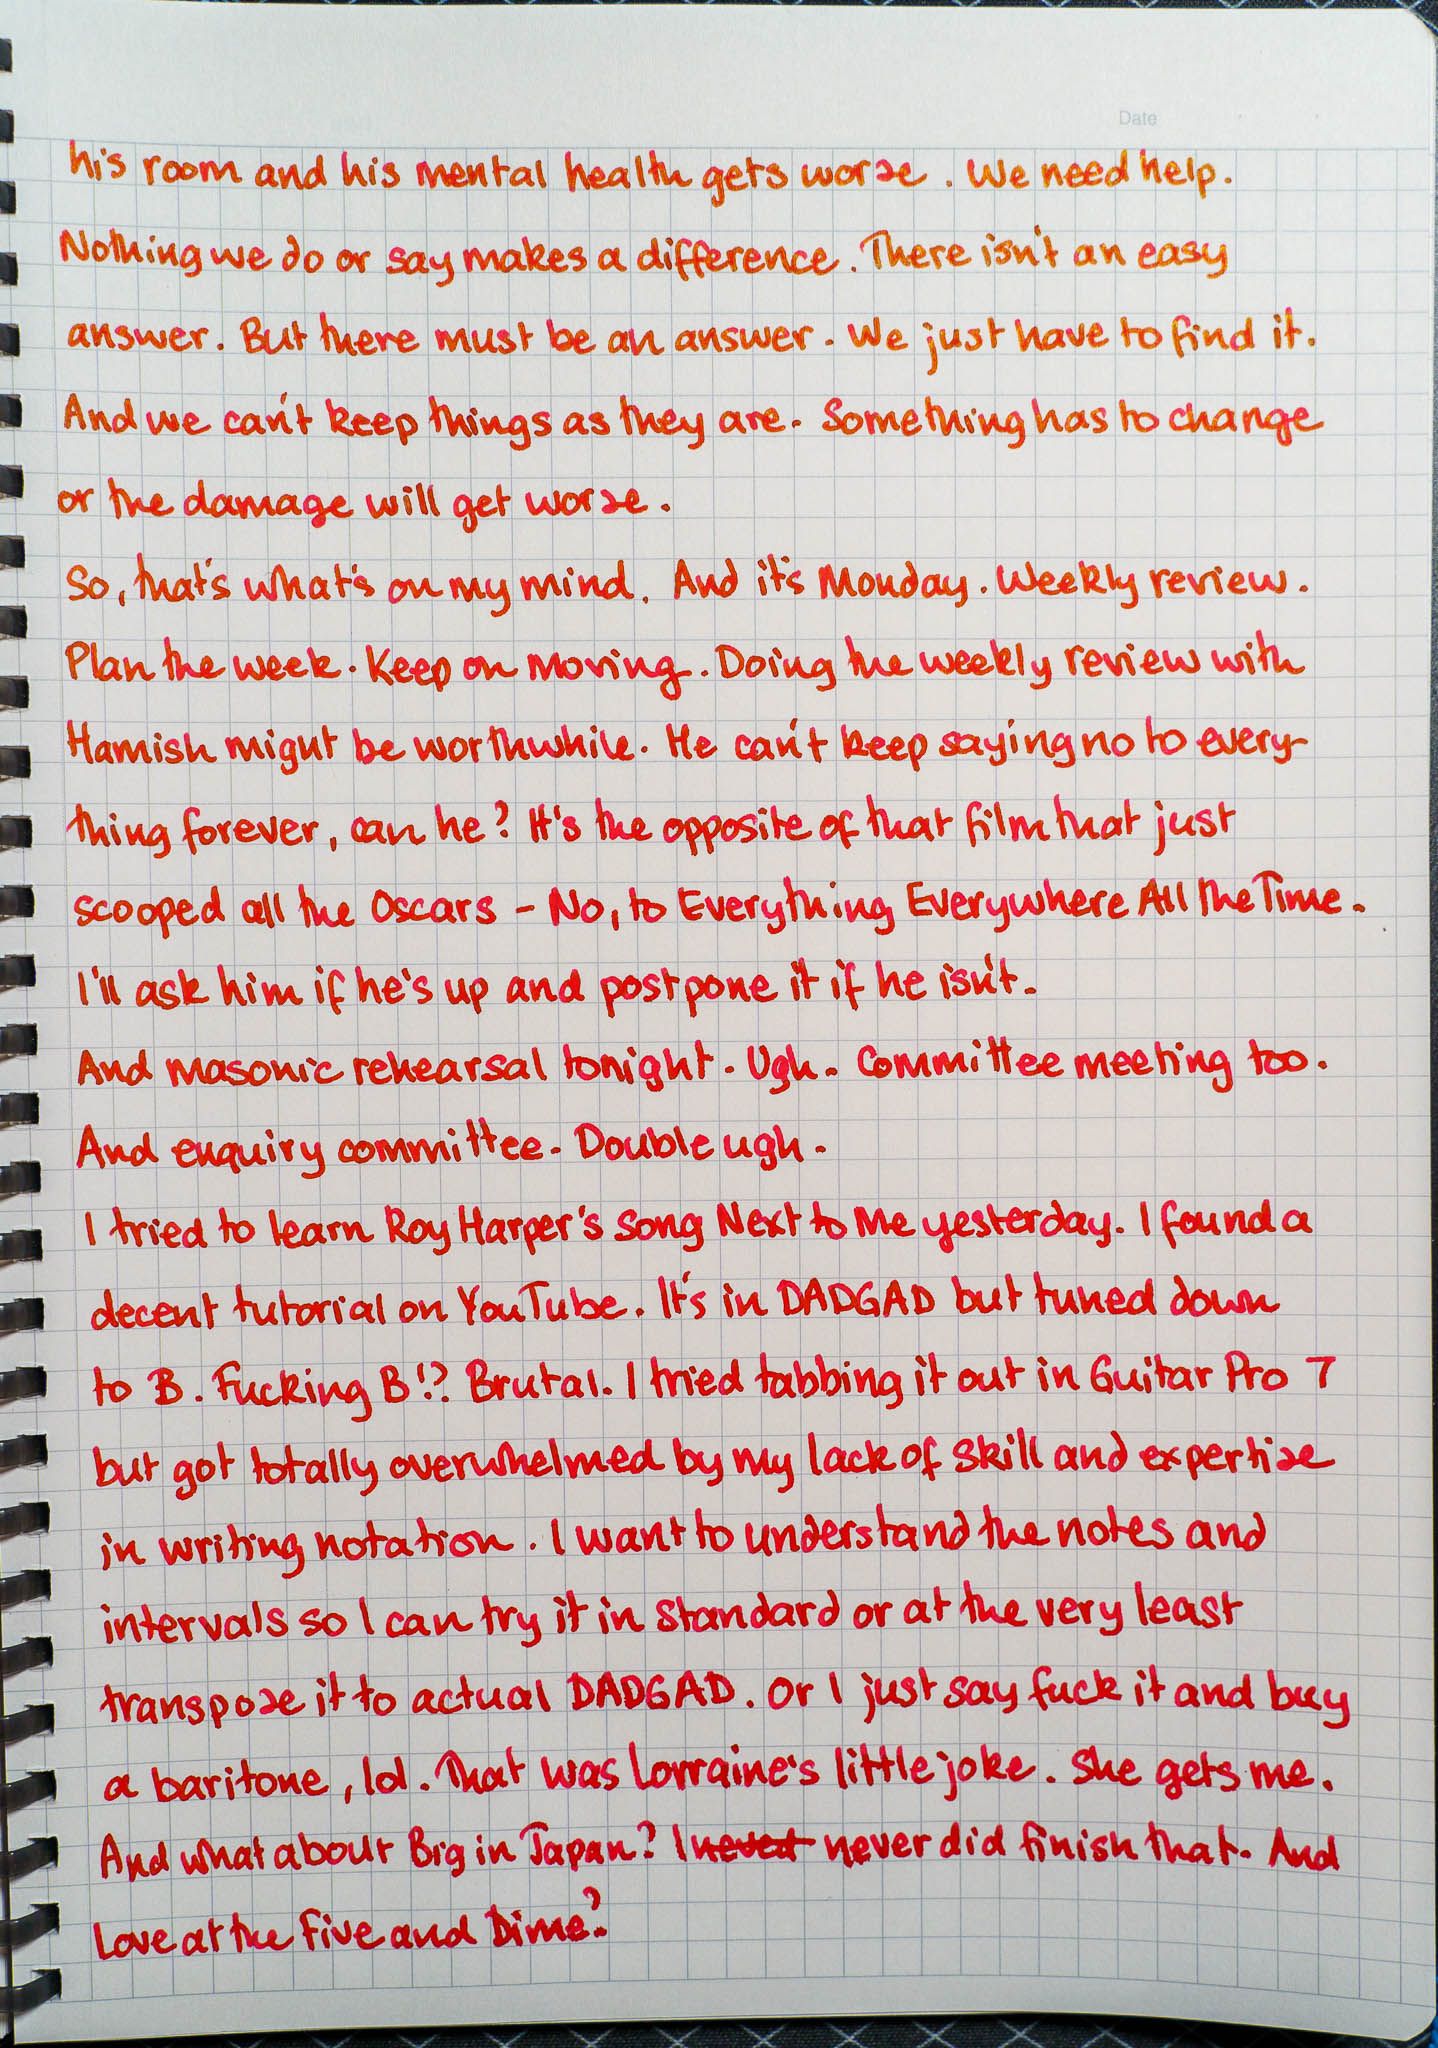 Date
his room and his mental health gets worse. We need help.
Nothing we do or say makes a difference. There isn't an easy
answer. But there must be an answer. We just have to find it.
And we can't keep things as they are. Something has to change
or the damage will get worse.
So, that's what's on my mind. And it's Monday. Weekly review.
Plan the week. Keep on moving. Doing the weekly review with
Hamish might be worthwhile. He can't keep saying no to every-
thing forever, can he? It's the opposite of that film that just
scooped all the Oscars - No, to Everything Everywhere All The Time.
I'll ask him if he's up and postpone it if he isn't.
And masonic rehearsal tonight. Ugh. Committee meeting too.
And enquiry committee. Double ugh.
I tried to learn Roy Harper's song Next to Me yesterday. I found a
decent tutorial on YouTube. It's in DADGAD but tuned down
to B. Fucking B!? Brutal. I tried tabbing it out in Guitar Pro 7
but got totally overwhelmed by my lack of skill and expertise
in writing notation. I want to understand the notes and
intervals so I can try it in standard or at the very least
transpose it to actual DADGAD. Or I just say fuck it and buy
a baritone, lol. That was Lorraine's little joke. She gets me.
And what about Big in Japan? I never did finish that. And
Love at the Five and Dime?